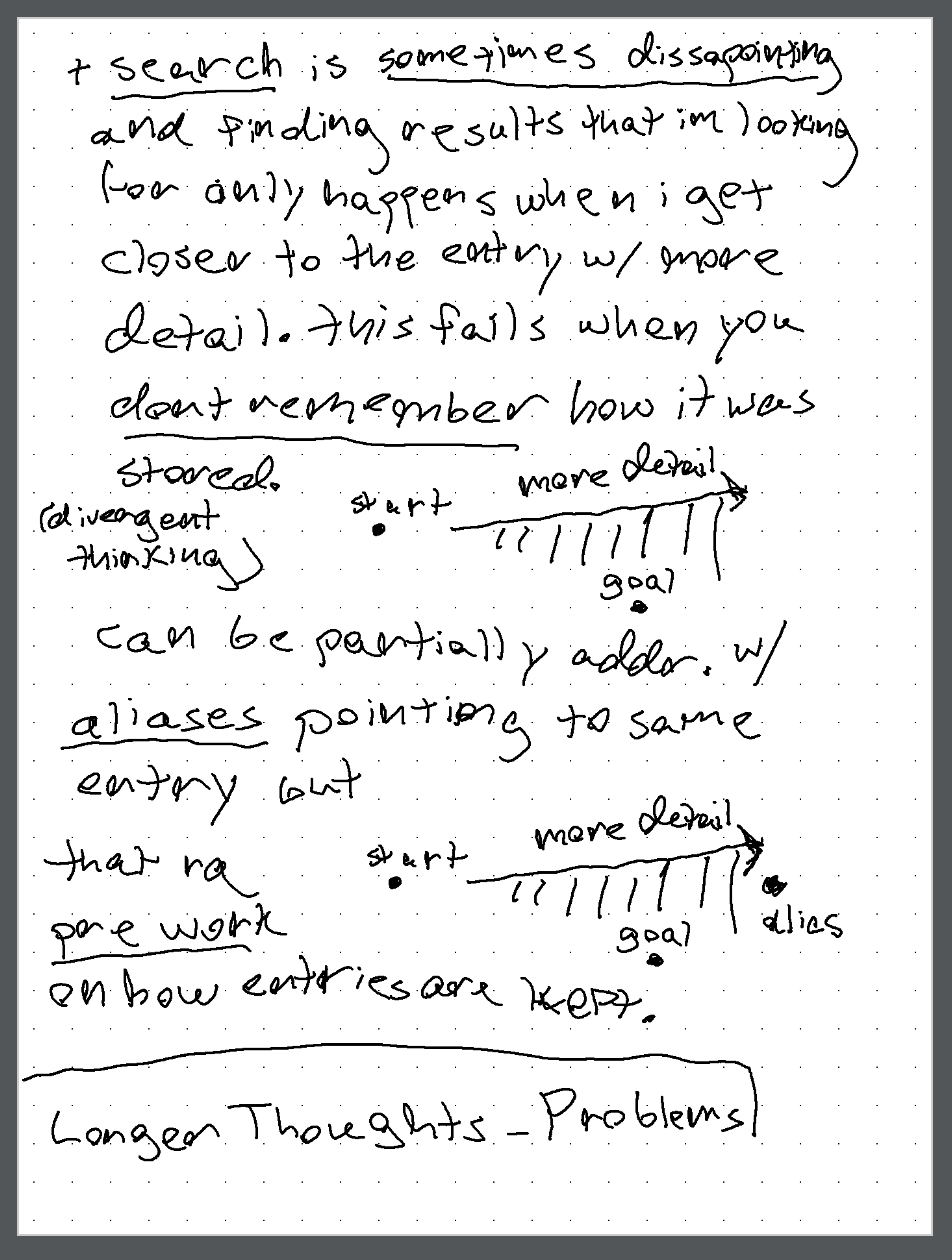 + search is sometimes dissapointing
and finding results that im looking
for only happens when i get
closer to the entry w/ more
detail. this fails when you
dont remember how it was
stored.
(divergent
thinking)
start
more detail
goal
can be partially addr. w/
aliases pointing to same
entry but
that rq
pre work
start
more detail
goal
alias
on how entries are kept.
Longer Thoughts - Problems